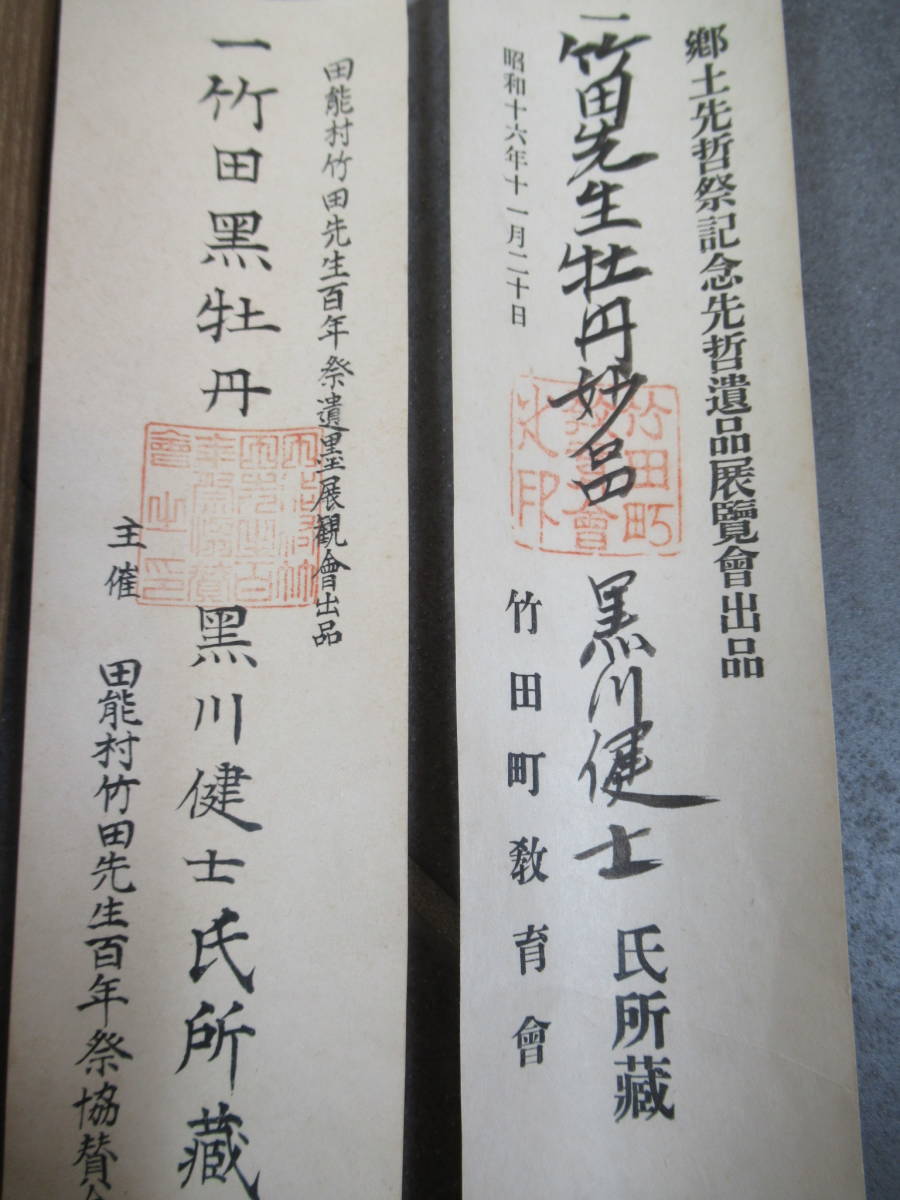 郷土先哲祭記念先哲遺品展覽會出品
一竹田先生牡丹妙品 黒川健士 氏所藏
昭和十六年十一月二十日
竹田町教育會
竹田町教育會之印
田能村竹田先生百年祭遺墨展観會出品
一竹田黑牡丹 黒川健士氏所藏
主催 田能村竹田先生百年祭協賛